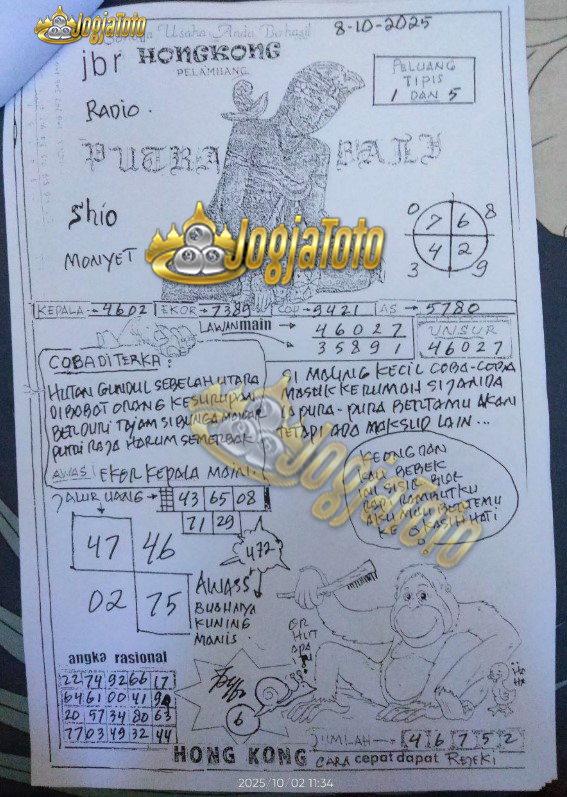 JOGJATOTO
Usaha Anda Berhasil
8-10-2025
jbr HONGKONG
PELAMBANG.
PELUANG
TIPIS
1 DAN 5
RADIO.
PUTRA BALI
Shio
MONYET
0 8
7 6
4 2
3 9
JOGJATOTO
KEPALA → 4602 EKOR → 7389 COP → 9421 AS → 5780
LAWAN main → 46027
35891
UNSUR
46027
COBA DITERKA:
HUTAN GUNDUL SEBELAH UTARA
DIBOBOT ORANG KESURUPAN
BERDURI TAJAM SI BUNGA MAWAR
PUTRI RAJA HARUM SEMERBAK
AWAS EKOR KEPALA MAIN.
SI MAUNG KECIL COBA-COBA
MASUK KERUMAH SI JANDA
PURA-PURA BERTAMU AKAN
TETAPI ADA MAKSUD LAIN...
KEONG DAN
KAU BEBEK
INI SISIR BIAR
RAPI RAMBUTKU
AKU MAU BERTEMU
KE 6 KASIH HATI
JALUR UANG →
43 65 08
71 29
JOGJATOTO
47 46
02 75
472
AWASS
BUAHNYA
KUNING
MANIS.
angka rasional
22 74 92 66 17
64 61 00 41
20 57 34 80 63
77 03 49 32 44
6
JUMLAH → 4 6 7 5 2
HONG KONG CARA cepat dapat REJEKI
2025/10/02 11:34